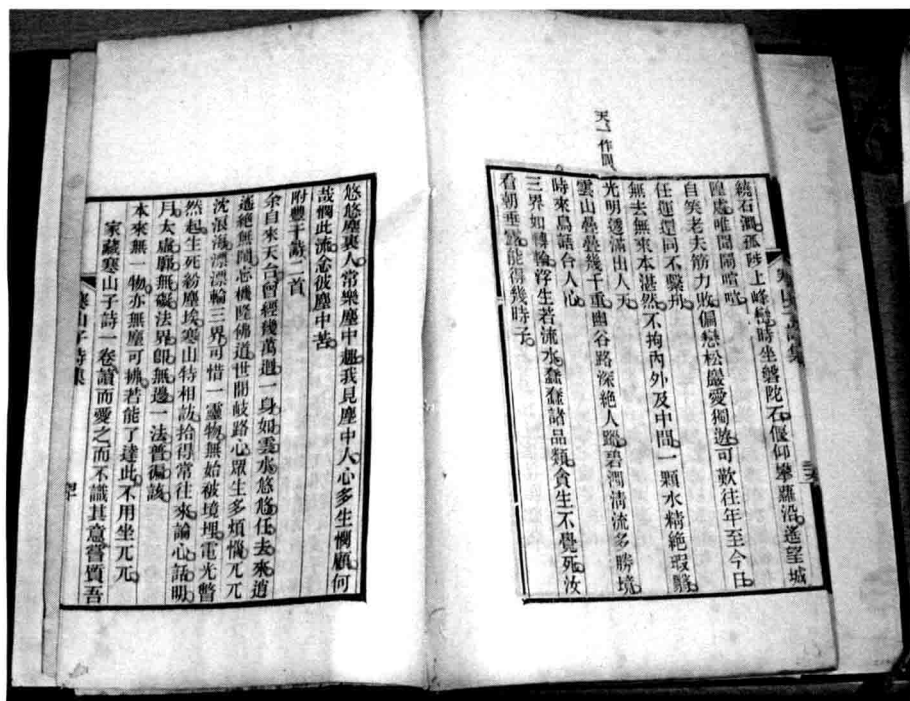 天一作間
寒山子詩集
繞石澗。孤陟上峰巒。時坐磐陀石。偃仰攀蘿沿。遙望城
隍處。唯聞鬧喧喧。
自笑老夫筋力收。偏戀松巖愛獨遊。可歎往年至今日。
任運還同不繫舟。
無去無來本湛然。不拘內外及中間。一顆水精絕瑕翳。
光明透滿出人天。
雲山疊疊幾千重。幽谷路深絕人蹤。碧澗清流多勝境。
時來鳥語合人心。
三界如轉輪。浮生若流水。蠢蠢諸品類。貪生不覺死。汝
看朝垂露。能得幾時子。
悠悠塵裏人。常樂塵中趣。我見塵中人。心多生愍顧。何
哉愍此流。念彼塵中苦。
附豐干詩二首
余自來天台。曾經幾萬迴。一身如雲水。悠悠任去來。逍
遙絕無鬧。忘機隆佛道。世間歧路心。眾生多煩惱。兀兀
沈浪海。漂漂輪三界。可惜一靈物。無始被境埋。電光瞥
然起。生死紛塵埃。寒山特相訪。拾得常往來。論心話明
月。太虛廓無礙。法界即無邊。一法普徧該。
本來無一物。亦無塵可拂。若能了達此。不用坐兀兀。
家藏寒山子詩一卷。讀而愛之。而不識其意。嘗質吾
寒山子詩集